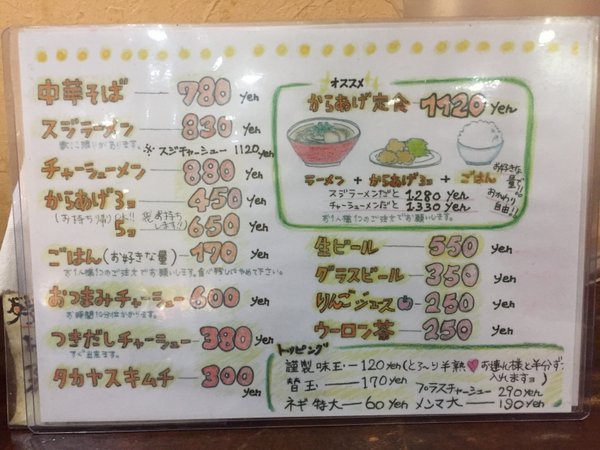 中華そば 780 yen
スジラーメン 830 yen
数に限りがあります。
※スジチャーシュー 1120 yen
チャーシューメン 880 yen
からあげ3コ 450 yen
5コ 650 yen
ごはん(お好きな量) 190 yen
お1人様1つのご注文でお願いします。食べ残しはやめて下さい。
おつまみチャーシュー 600 yen
お時間10分位かかります。
つきだしチャーシュー 380 yen
すぐ出来ます。
タカヤスキムチ 300 yen
オススメ
からあげ定食 1120 yen
ラーメン + からあげ3コ + ごはん
お好きな量で!!
おかわり自由!!
スジラーメンだと 1280 yen
チャーシューメンだと 1330 yen
お1人様1つのご注文でお願いします。
生ビール 550 yen
グラスビール 350 yen
りんごジュース 250 yen
ウーロン茶 250 yen
トッピング
謹製味玉 120 yen (とろ〜り半熟♥お連れ様と半分ずつ入れますョ)
替玉 170 yen
プラスチャーシュー 290 yen
ネギ特大 60 yen
メンマ大 190 yen